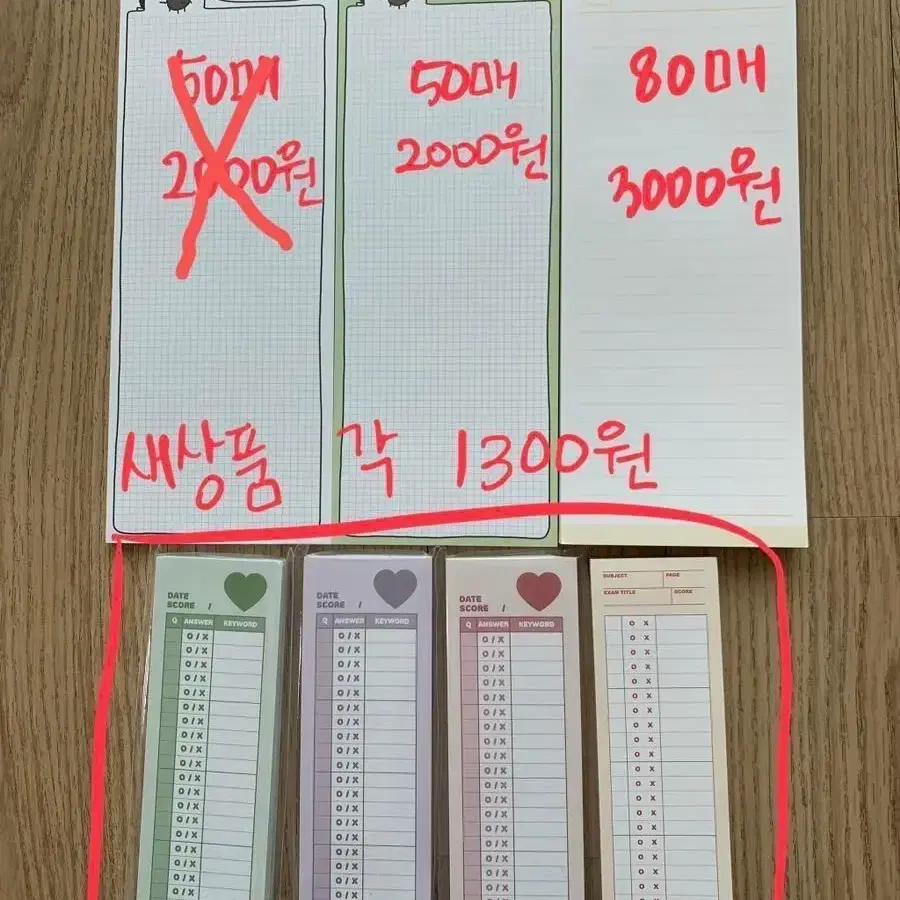 50매
2000원
50매
2000원
80매
3000원
새상품 각 1300원
DATE
SCORE /
Q ANSWER KEYWORD
O / X
O / X
O / X
O / X
O / X
O / X
O / X
O / X
O / X
O / X
O / X
O / X
O / X
O / X
O / X
O / X
O / X
O / X
DATE
SCORE /
Q ANSWER KEYWORD
O / X
O / X
O / X
O / X
O / X
O / X
O / X
O / X
O / X
O / X
O / X
O / X
O / X
O / X
O / X
O / X
O / X
O / X
DATE
SCORE /
Q ANSWER KEYWORD
O / X
O / X
O / X
O / X
O / X
O / X
O / X
O / X
O / X
O / X
O / X
O / X
O / X
O / X
O / X
O / X
O / X
O / X
SUBJECT PAGE
EXAM TITLE SCORE
O X
O X
O X
O X
O X
O X
O X
O X
O X
O X
O X
O X
O X
O X
O X
O X
O X
O X
O X